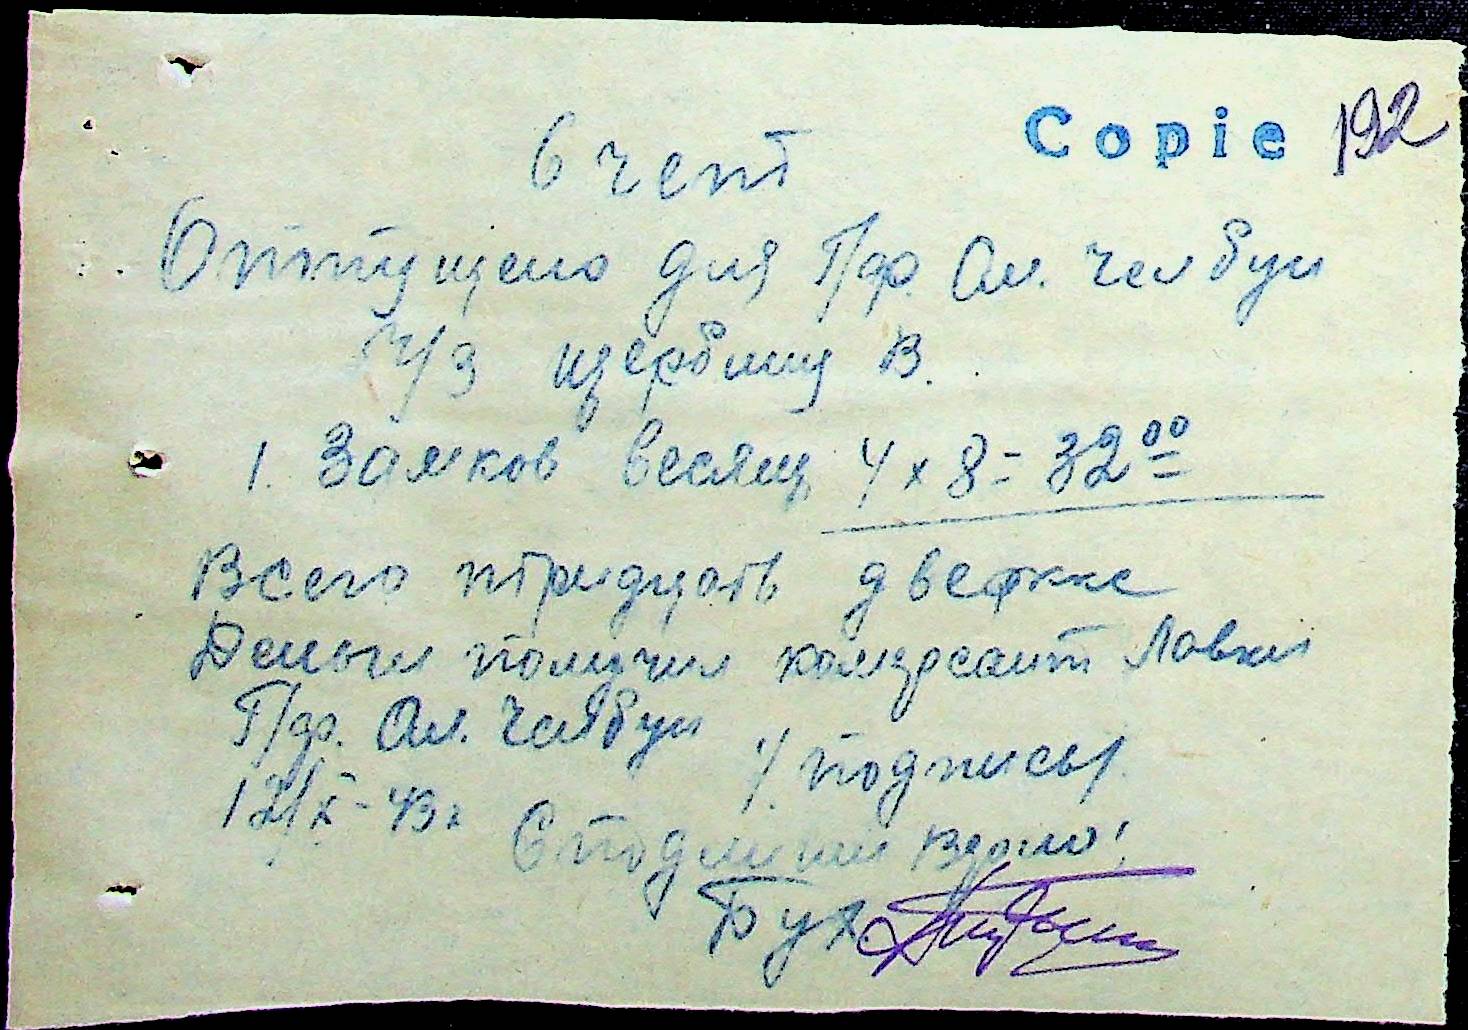 Copie 192
Счет
Отпущено для П/ф. Ал. Челбуи
Ч/З Щербину В.
1. Замков весящ 4 х 8 = 32 00
Всего тридцать две
Деньги получил комерсант Лавки
П/ф. Ал. Челбуи /подпись/.
12/X - 43г
С подлинным верно!
Бух